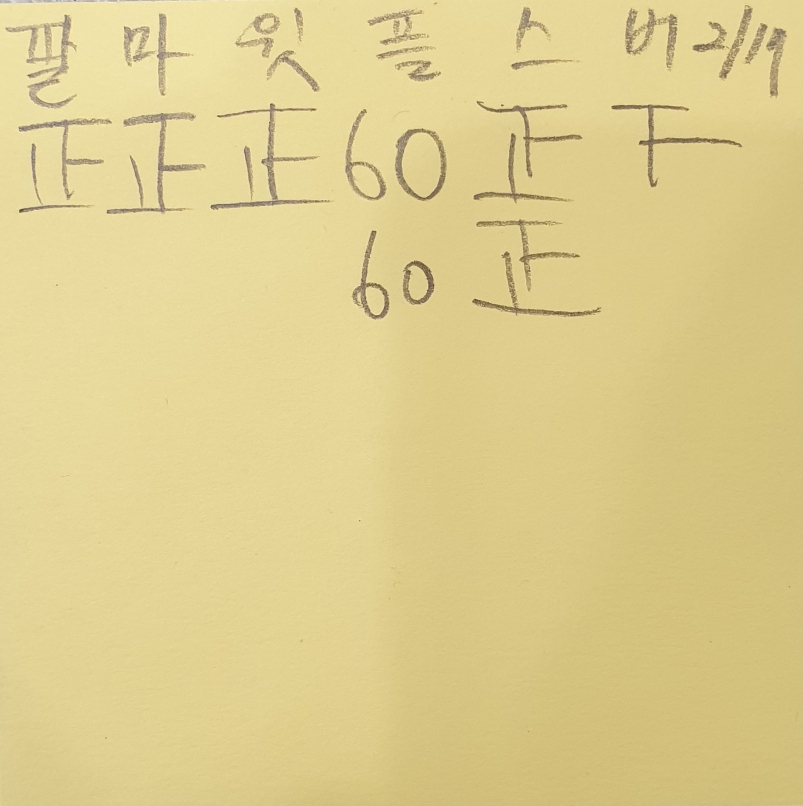 팔 마 윗 플 스 버 2/19
正 正 正 60 正 下
60 正